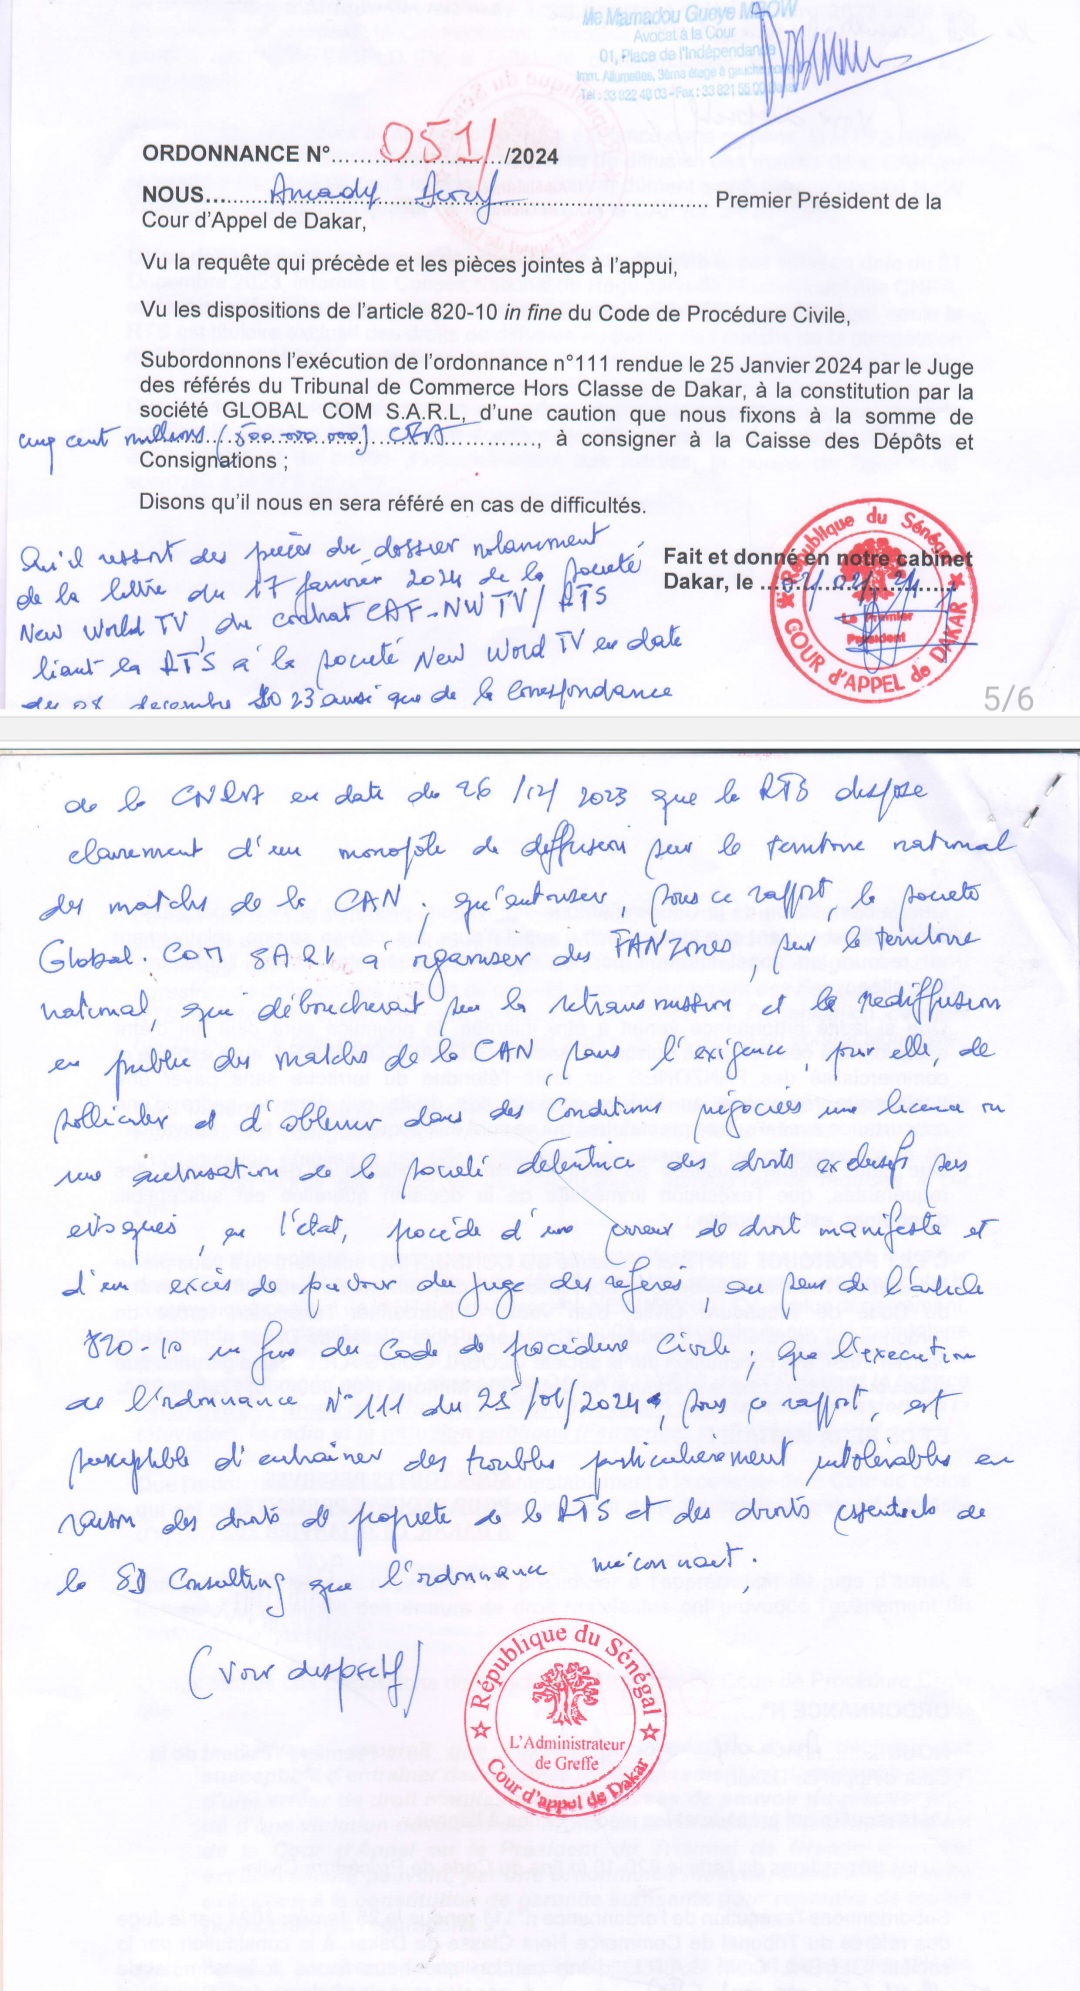 Me Mamadou Gueye MBOW
Avocat à la Cour
01, Place de l'Indépendance
Imm. Allumettes, 3ème étage à gauche
Tél : 33 822 48 03 - Fax : 33 821 55 00 Dakar
ORDONNANCE N°.... 051/ /2024
NOUS... Amady ... Premier Président de la
Cour d'Appel de Dakar,
Vu la requête qui précède et les pièces jointes à l'appui,
Vu les dispositions de l'article 820-10 in fine du Code de Procédure Civile,
Subordonnons l'exécution de l'ordonnance n°111 rendue le 25 Janvier 2024 par le Juge
des référés du Tribunal de Commerce Hors Classe de Dakar, à la constitution par la
société GLOBAL COM S.A.R.L, d'une caution que nous fixons à la somme de
cinq cent millions (500.000.000) CFA, à consigner à la Caisse des Dépôts et
Consignations ;
Disons qu'il nous en sera référé en cas de difficultés.
Fait et donné en notre cabinet
Dakar, le
République du Sénégal
Le Premier
Président
COUR d'APPEL de DAKAR
Qu'il ressort des pièces du dossier notamment
de la lettre du 17 janvier 2024 de la société
New World TV, du contrat CAF-NWTV/RTS
liant la RTS à la société New Word TV en date
du 08 décembre 2023 ainsi que de la Correspondance
5/6
de la CNRA en date du 26/12/2023 que la RTS dispose
clairement d'un monopôle de diffusion sur le territoire national
des matchs de la CAN ; qu'autoriser, sous ce rapport, la société
Global.COM SARL à organiser des FANZONES, sur le territoire
national, qui déboucherait sur la retransmission et la rediffusion
en public des matchs de la CAN, sans l'exigence, pour elle, de
solliciter et d'obtenir dans des Conditions négociées une licence ou
une autorisation de la société détentrice des droits exclusifs sus
évoqués, en l'état, procède d'une erreur de droit manifeste et
d'un excès de pouvoir du juge des référés, au sens de l'article
820-10 in fine du Code de procédure Civile ; que l'exécution
de l'ordonnance N°111 du 25/01/2024, sous ce rapport, est
susceptible d'entraîner des troubles particulièrement intolérables en
raison des droits de propriété de la RTS et des droits essentiels de
la SD Consulting que l'ordonnance méconnait ;
(Voir dispositif)
République du Sénégal
L'Administrateur
de Greffe
Cour d'appel de Dakar